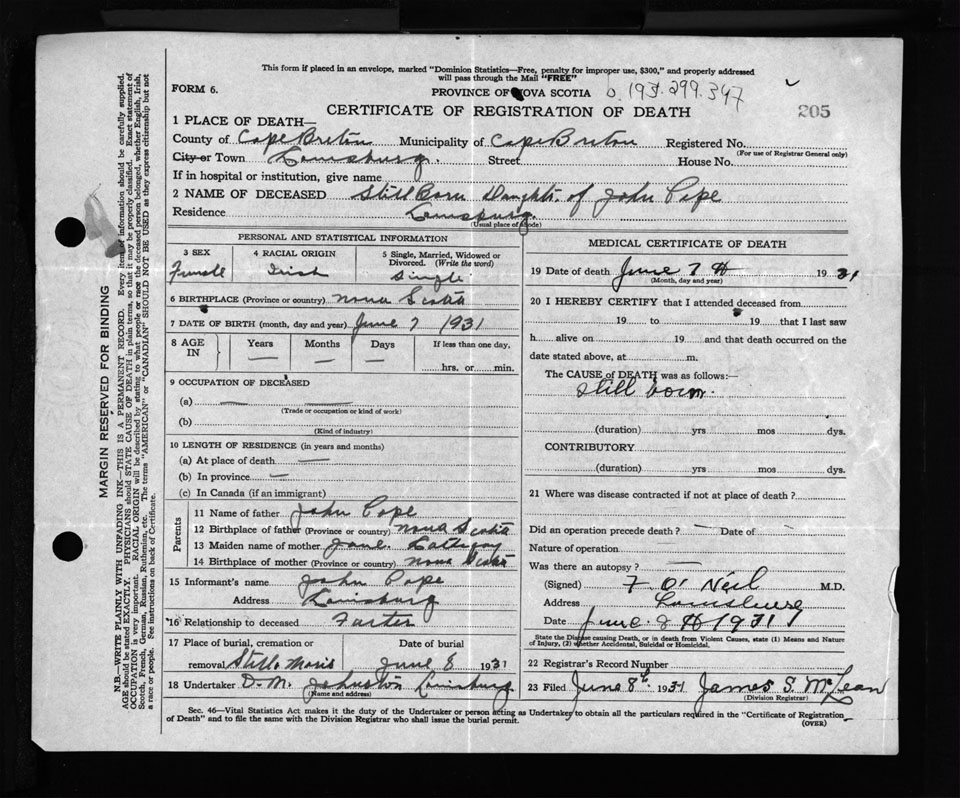 This form if placed in an envelope, marked "Dominion Statistics—Free, penalty for improper use, $300," and properly addressed
will pass through the Mail "FREE"
FORM 6.
PROVINCE OF NOVA SCOTIA
205
CERTIFICATE OF REGISTRATION OF DEATH
1 PLACE OF DEATH—
County of Cape Breton Municipality of Cape Breton Registered No.
(For use of Registrar General only)
City or Town Louisburg. Street House No.
If in hospital or institution, give name
2 NAME OF DECEASED Still Born Daughter of John Pope
Residence Louisburg.
(Usual place of abode)
PERSONAL AND STATISTICAL INFORMATION
3 SEX
Female
4 RACIAL ORIGIN
Irish
5 Single, Married, Widowed or
Divorced. (Write the word)
Single
6 BIRTHPLACE (Province or country) Nova Scotia
7 DATE OF BIRTH (month, day and year) June 7 1931
8 AGE
IN
Years
Months
Days
If less than one day,
hrs. or min.
9 OCCUPATION OF DECEASED
(a)
(Trade or occupation or kind of work)
(b)
(Kind of industry)
10 LENGTH OF RESIDENCE (in years and months)
(a) At place of death
(b) In province
(c) In Canada (if an immigrant)
Parents
11 Name of father John Pope
12 Birthplace of father (Province or country) Nova Scotia
13 Maiden name of mother Jane
14 Birthplace of mother (Province or country) Nova Scotia
15 Informant's name John Pope
Address Louisburg
16 Relationship to deceased
17 Place of burial, cremation or Date of burial
removal June 8 1931
18 Undertaker D. M. Johnston Louisburg.
(Name and address)
MEDICAL CERTIFICATE OF DEATH
19 Date of death June 7th 1931
(Month, day and year)
20 I HEREBY CERTIFY that I attended deceased from
19 to 19 that I last saw
h alive on 19 and that death occurred on the
date stated above, at m.
The CAUSE of DEATH was as follows:—
Still born.
(duration) yrs mos dys.
CONTRIBUTORY
(duration) yrs mos dys.
21 Where was disease contracted if not at place of death?
Did an operation precede death? — Date of
Nature of operation
Was there an autopsy? —
(Signed) F O'Neil M.D.
Address
Date June 8th 1931
State the Disease causing Death, or in death from Violent Causes, state (1) Means and Nature
of Injury, (2) whether Accidental, Suicidal or Homicidal.
22 Registrar's Record Number
23 Filed June 8th 1931 James S. McLean
(Division Registrar)
Sec. 46—Vital Statistics Act makes it the duty of the Undertaker or person acting as Undertaker to obtain all the particulars required in the "Certificate of Registration
of Death" and to file the same with the Division Registrar who shall issue the burial permit.
(OVER)
MARGIN RESERVED FOR BINDING
N.B.—WRITE PLAINLY WITH UNFADING INK—THIS IS A PERMANENT RECORD. Every item of information should be carefully supplied.
AGE should be stated EXACTLY. PHYSICIANS should STATE CAUSE OF DEATH in plain terms, so that it may be properly classified. Exact statement of
OCCUPATION is very important. RACIAL ORIGIN will be described by stating to what people or race the deceased person belonged, whether English, Irish,
Scotch, French, German, Russian, Ruthenian, etc. The terms "AMERICAN" or "CANADIAN" SHOULD NOT BE USED as they express citizenship but not
a race or people. See instructions on back of Certificate.